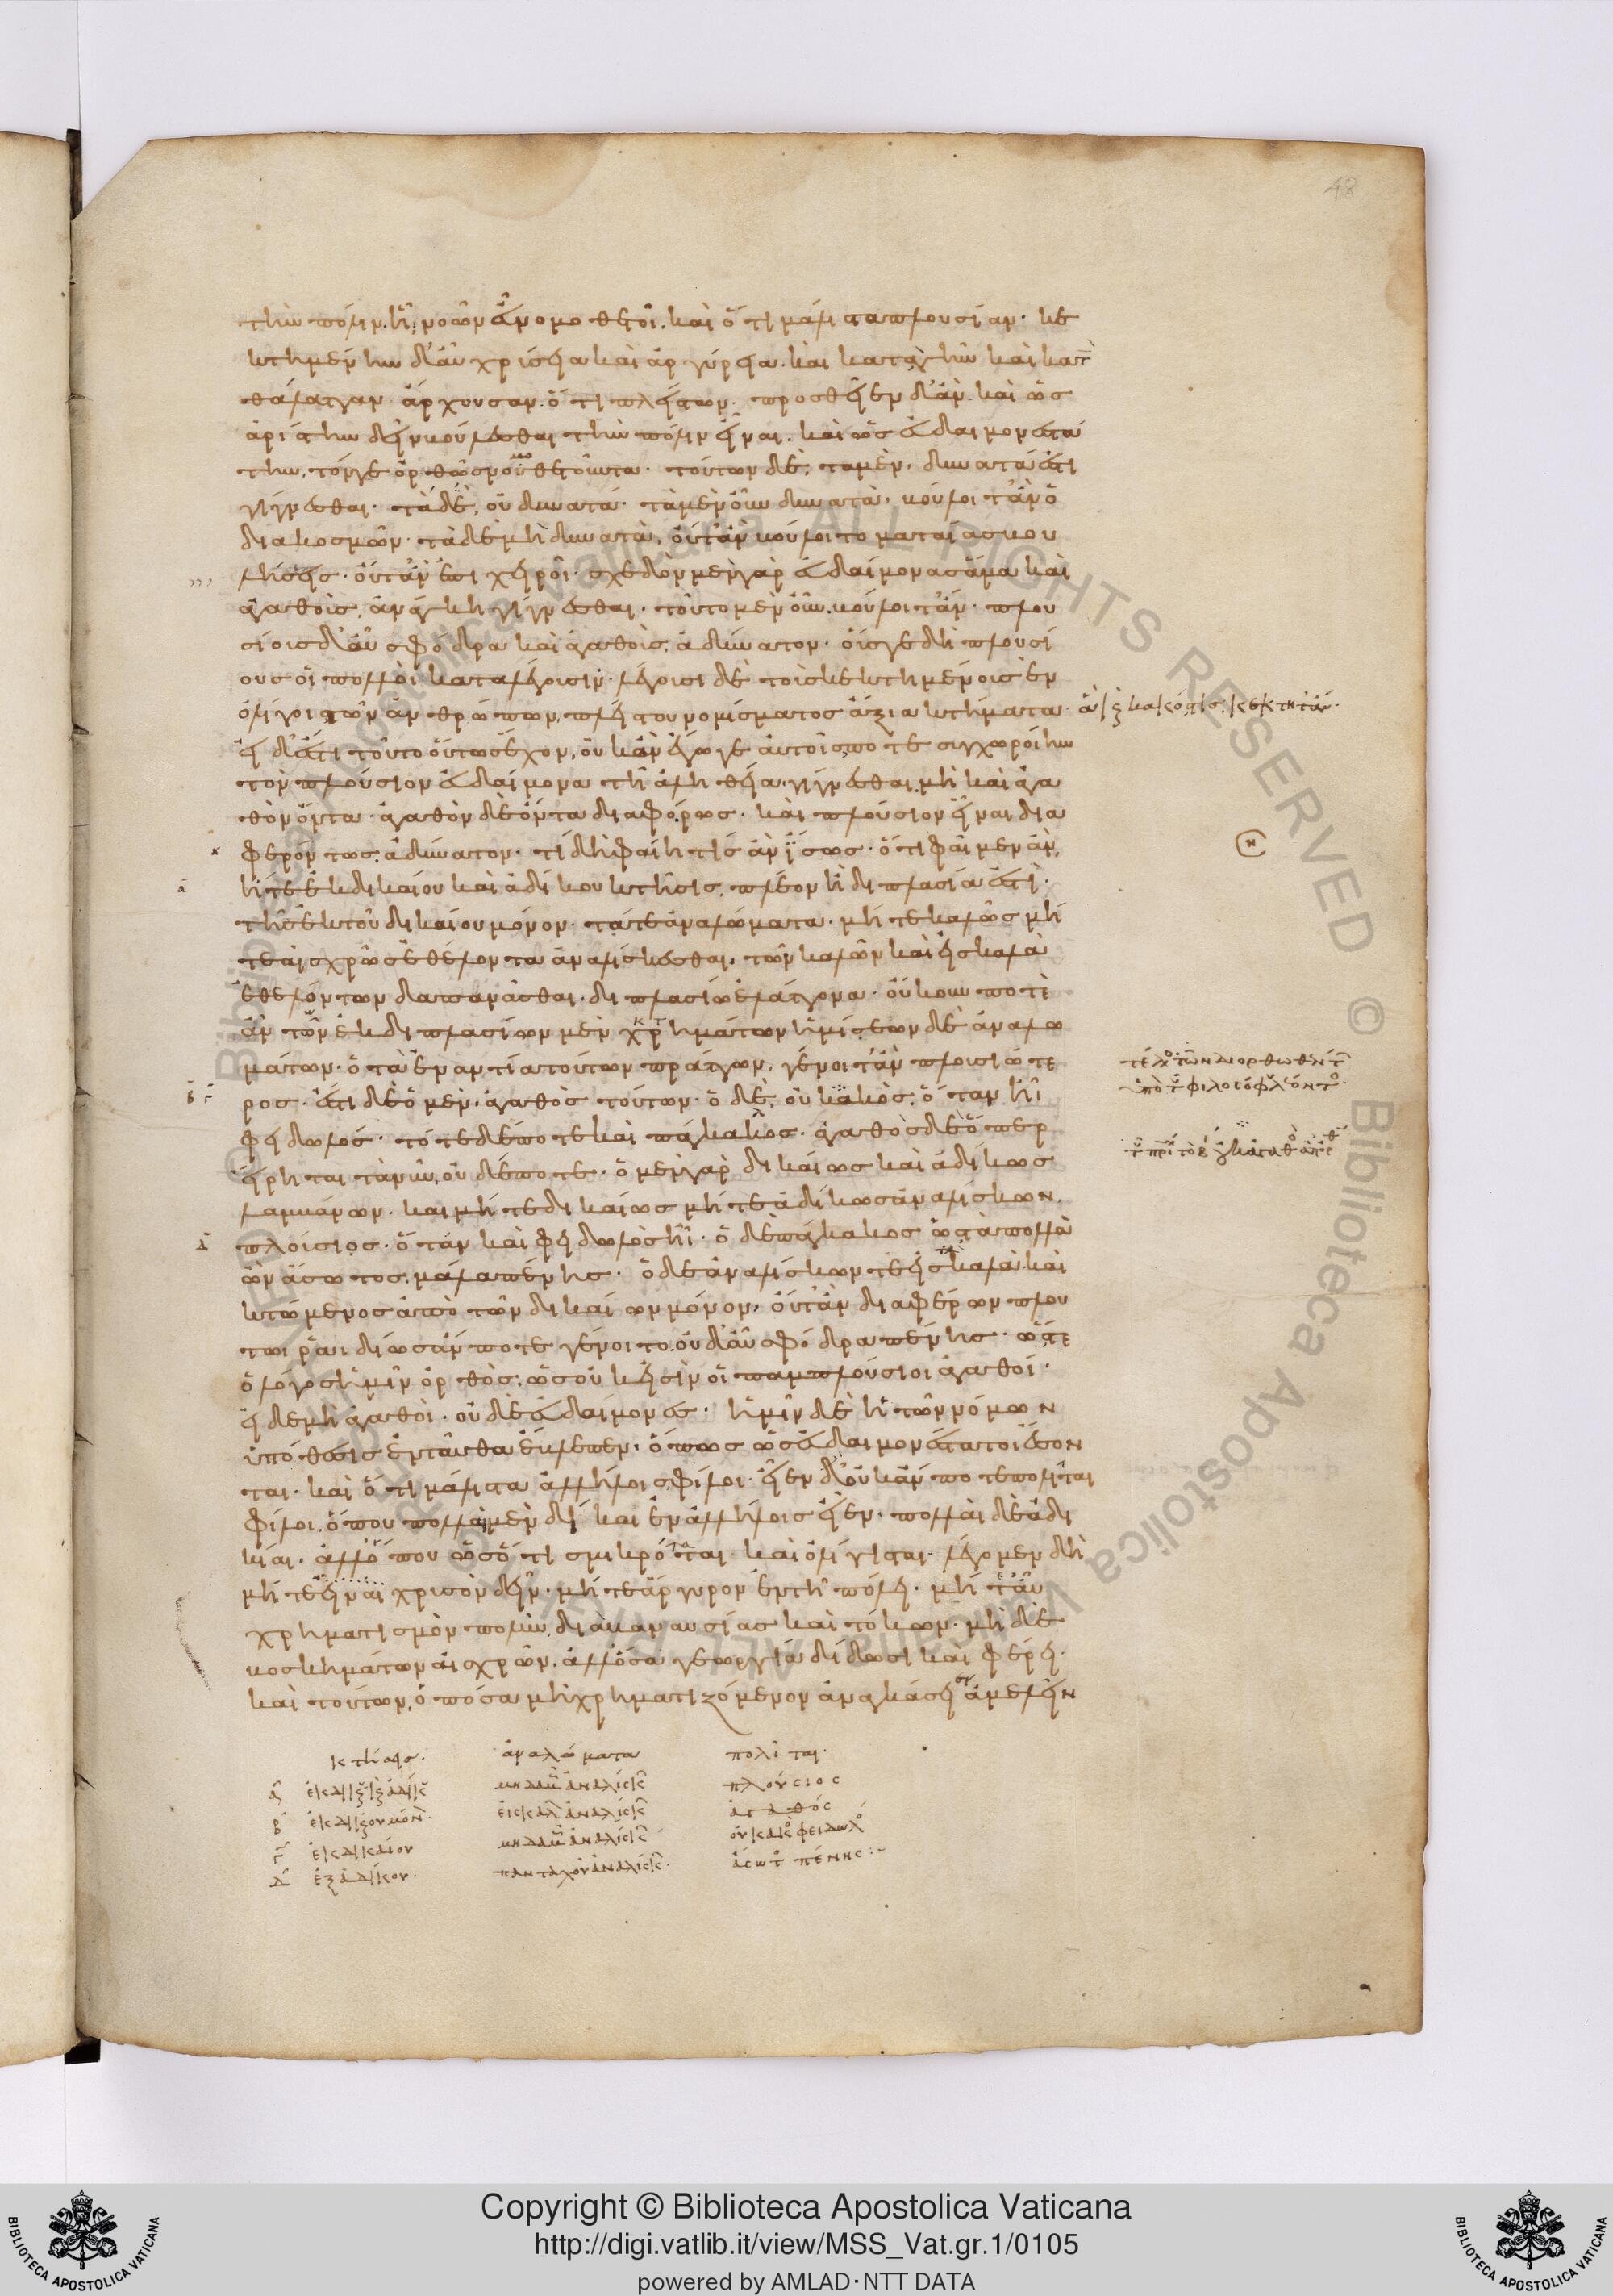 τὴν πόλιν. ἣν νοῶν εὖ νομοθετοῖ. καὶ ὅτι μάλιστα πλουσίαν. κε
κτημένην δ' αὖ χρύσεια καὶ ἀργύρεια. καὶ κατὰ γῆν καὶ κατὰ
θάλατταν ἄρχουσαν. ὅτι πλείστων. προσθεῖεν δ' ἂν. καὶ ὡς
ἀρίστην δεῖν βούλεσθαι τὴν πόλιν εἶναι. καὶ ὡς εὐδαιμονεστά
την, τόν γε ὀρθῶς νομοθετοῦντα. τούτων δὲ, τὰ μὲν, δυνατά ἐστι
γίγνεσθαι. τὰ δὲ, οὐ δυνατά. τὰ μὲν οὖν δυνατὰ, βούλοιτ' ἂν ὁ
διακοσμῶν. τὰ δὲ μὴ δυνατὰ, οὔτ' ἂν βούλοιτο ματαίας βου
λήσεις. οὔτ' ἂν ἐπιχειροῖ. σχεδὸν μὲν γὰρ εὐδαίμονας ἅμα καὶ
ἀγαθοὺς, ἀνάγκη γίγνεσθαι. τοῦτο μὲν οὖν. βούλοιτ' ἄν. πλου
σίους δ' αὖ σφόδρα καὶ ἀγαθοὺς, ἀδύνατον. οὕς γε δὴ πλουσί
ους οἱ πολλοὶ καταλέγουσιν. λέγουσι δὲ τοὺς κεκτημένους ἐν
ὀλίγοις τῶν ἀνθρώπων, πλείστου νομίσματος ἄξια κτήματα. ἃ καὶ κακός τις κεκτῇτ' ἄν.
εἰ δ' ἔστι τοῦτο οὕτως ἔχον, οὐκ ἂν ἔγωγε αὐτοῖς ποτε συγχωροίην
τὸν πλούσιον εὐδαίμονα τῇ ἀληθείᾳ γίγνεσθαι. μὴ καὶ ἀγα
θὸν ὄντα. ἀγαθὸν δὲ ὄντα διαφόρως. καὶ πλούσιον εἶναι δια
φερόντως, ἀδύνατον. τί δὴ φαίη τὶς ἂν ἴσως. ὅτι φαῖμεν ἂν,
ἥ τε ἐκ δικαίου καὶ ἀδίκου κτῆσις, πλέον ἢ διπλασία ἐστὶ.
τῆς ἐκ τοῦ δικαίου μόνον. τά τε ἀναλώματα. μήτε καλῶς μή
τε αἰσχρῶς ἐθέλοντα ἀναλίσκεσθαι, τῶν καλῶν καὶ εἰς καλὰ
ἐθελόντων δαπανᾶσθαι. διπλασίῳ ἐλάττονα. οὔκουν ποτὲ
ἂν τῶν ἐκ διπλασίων μὲν χρημάτων ἡμίσεων δὲ ἀναλω
μάτων. ὁ τὰ ἐναντία τούτων πράττων, γένοιτ' ἂν πλουσιώτε
ρος. ἔστι δὲ ὁ μὲν. ἀγαθὸς τούτων. ὁ δὲ, οὐ κακὸς, ὅταν ᾖ
φειδωλός. τότε δέ ποτε καὶ πάγκακος. ἀγαθὸς δὲ ὅπερ
εἴρηται τὰ νῦν, οὐδέποτε. ὁ μὲν γὰρ δικαίως καὶ ἀδίκως
λαμβάνων. καὶ μήτε δικαίως μήτε ἀδίκως ἀναλίσκων.
πλούσιος. ὅταν καὶ φειδωλὸς ᾖ. ὁ δὲ πάγκακος ὡς τὰ πολλὰ
ὢν ἄσωτος, μάλα πένης. ὁ δὲ ἀναλίσκων τε εἰς τὰ καλὰ. καὶ
κτώμενος ἀπὸ τῶν δικαίων μόνον, οὔτ' ἂν διαφέρων πλού
τωι ῥαιδίως ἄν ποτε γένοιτο. οὐδ' αὖ σφόδρα πένης. ὥστε
ὁ λόγος ἡμῖν ὀρθὸς. ὡς οὐκ εἰσὶν οἱ παμπλούσιοι ἀγαθοί.
εἰ δὲ μὴ ἀγαθοὶ. οὐδὲ εὐδαίμονες. ἡμῖν δὲ ἡ τῶν νόμων
ὑπόθεσις ἐνταῦθα ἔβλεπεν. ὅπως ὡς εὐδαιμονέστατοι ἔσον
ται. καὶ ὅτι μάλιστα ἀλλήλοις φίλοι. εἶεν δ' οὐκ ἄν ποτε πολῖται
φίλοι. ὅπου πολλαὶ μὲν δίκαι ἐν ἀλλήλοις εἶεν. πολλαὶ δὲ ἀδι
κίαι. ἀλλ' ὅπου ὡς ὅτι σμικρόταται καὶ ὀλίγισται. λέγομεν δὴ
μήτε εἶναι χρυσὸν δεῖν. μήτε ἄργυρον ἐν τῇ πόλει. μήτ' αὖ
χρηματισμὸν πολὺν διὰ βαναυσίας καὶ τόκων. μηδὲ
βοσκημάτων αἰσχρῶν. ἀλλ' ὅσα γεωργία δίδωσι καὶ φέρει.
καὶ τούτων, ὁπόσα μὴ χρηματιζόμενον ἀναγκάσει ἀμελεῖν
τέλος τῶν διορθωθέντων
ὑπὸ τοῦ φιλοσόφου λέοντος.
κτήσεις. ἀναλώματα πολῖται.
α ἐκ δικαίου καὶ ἐξ ἀδίκου μηδαμῶς ἀναλίσκων πλούσιος
β ἐκ δικαίου μόνον. εἰς καλὰ ἀναλίσκων ἀγαθός
γ ἐκ δικαίου μηδαμῶς ἀναλίσκων οὐ κακὸς φειδωλός
δ ἐξ ἀδίκου. ἀναλίσκων. ἄσωτος πένης
48
Copyright © Biblioteca Apostolica Vaticana
http://digi.vatlib.it/view/MSS_Vat.gr.1/0105
powered by AMLAD·NTT DATA